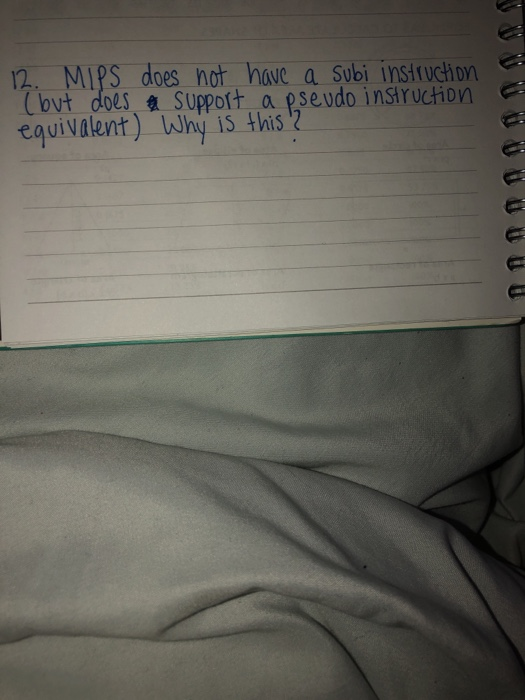 12. MIPS does not have a subi instruction
(but does support a pseudo instruction
equivalent) Why is this?